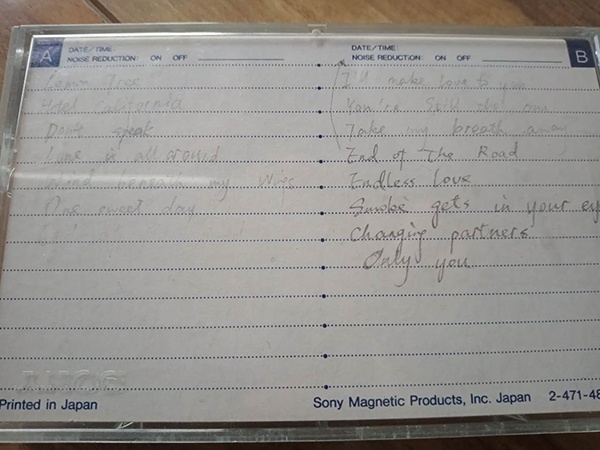 A
DATE/TIME:
NOISE REDUCTION: ON OFF
Lemon Tree
Hotel California
Don't speak
Love is all around
Wind beneath my Wigs
One sweet day
DATE/TIME:
NOISE REDUCTION: ON OFF
B
I'll make love to you
Still the one
Take my breath away
End of The Road
Endless Love
Smoke gets in your ey
Changing partners
Only you
SONY
Printed in Japan
Sony Magnetic Products, Inc. Japan 2-471-48